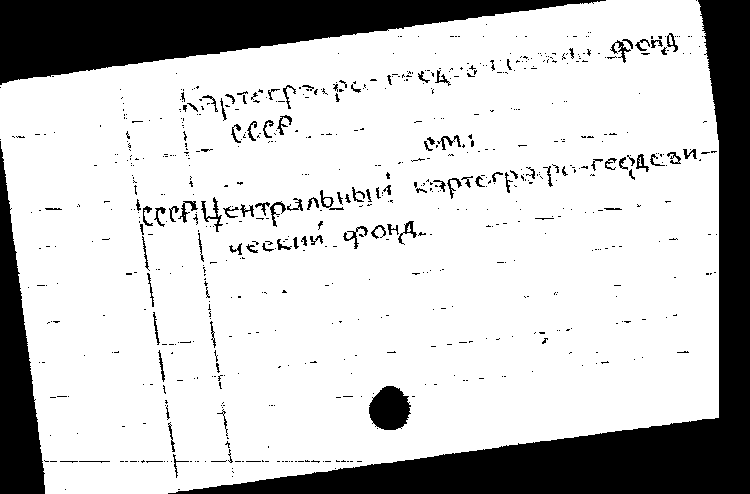 Картографо-геодезический фонд
СССР.
см.:
СССР. Центральный картографо-геодези-
ческий фонд.